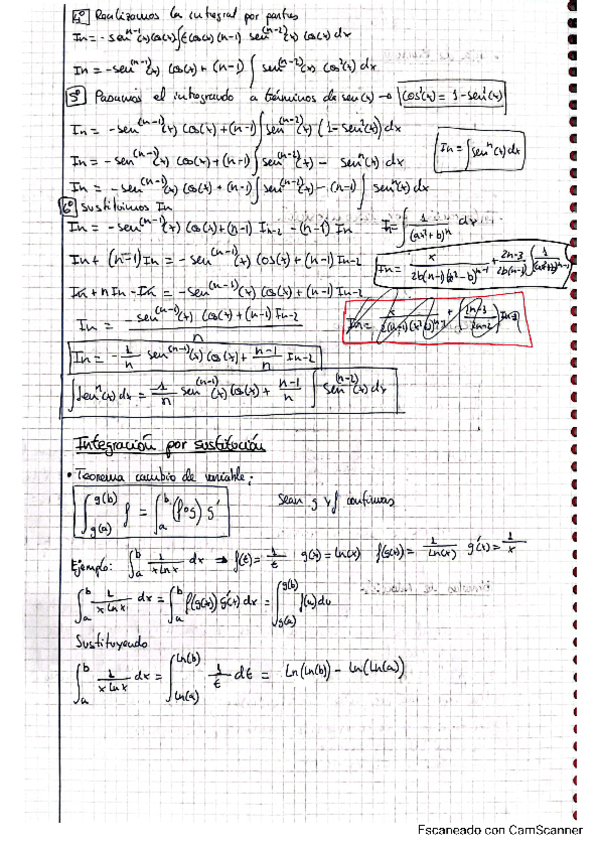 4º Realizamos la integral por partes
In = - sen^(n-1)(x) cos(x) ∫ (-cos(x)) (n-1) sen^(n-2)(x) cos(x) dx
In = - sen^(n-1)(x) cos(x) + (n-1) ∫ sen^(n-2)(x) cos²(x) dx
5º Pasamos el integrando a términos de sen(x) → cos²(x) = 1 - sen²(x)
In = - sen^(n-1)(x) cos(x) + (n-1) ∫ sen^(n-2)(x) (1 - sen²(x)) dx
In = ∫ sen^n(x) dx
In = - sen^(n-1)(x) cos(x) + (n-1) ∫ sen^(n-2)(x) - sen^n(x) dx
In = - sen^(n-1)(x) cos(x) + (n-1) ∫ sen^(n-2)(x) - (n-1) ∫ sen^n(x) dx
6º Sustituimos In
In = - sen^(n-1)(x) cos(x) + (n-1) In-2 - (n-1) In
In = ∫ 1/(ax²+b)^n dx
In + (n-1) In = - sen^(n-1)(x) cos(x) + (n-1) In-2
In + nIn - In = - sen^(n-1)(x) cos(x) + (n-1) In-2
In = (- sen^(n-1)(x) cos(x) + (n-1) In-2)/n
In = - 1/n sen^(n-1)(x) cos(x) + (n-1)/n In-2
∫ sen^n(x) dx = - 1/n sen^(n-1)(x) cos(x) + (n-1)/n ∫ sen^(n-2)(x) dx
Integración por sustitución
• Teorema cambio de variable:
∫_g(a)^g(b) f = ∫_a^b (f∘g) g'
Sean g y f continuas
Ejemplo: ∫_a^b 1/(x ln x) dx → f(t) = 1/t g(x) = ln(x) f(g(x)) = 1/ln(x) g'(x) = 1/x
∫_a^b 1/(x ln x) dx = ∫_a^b f(g(x)) g'(x) dx = ∫_g(a)^g(b) f(u) du
Sustituyendo
∫_a^b 1/(x ln x) dx = ∫_ln(a)^ln(b) 1/t dt = ln(ln(b)) - ln(ln(a))
Escaneado con CamScanner